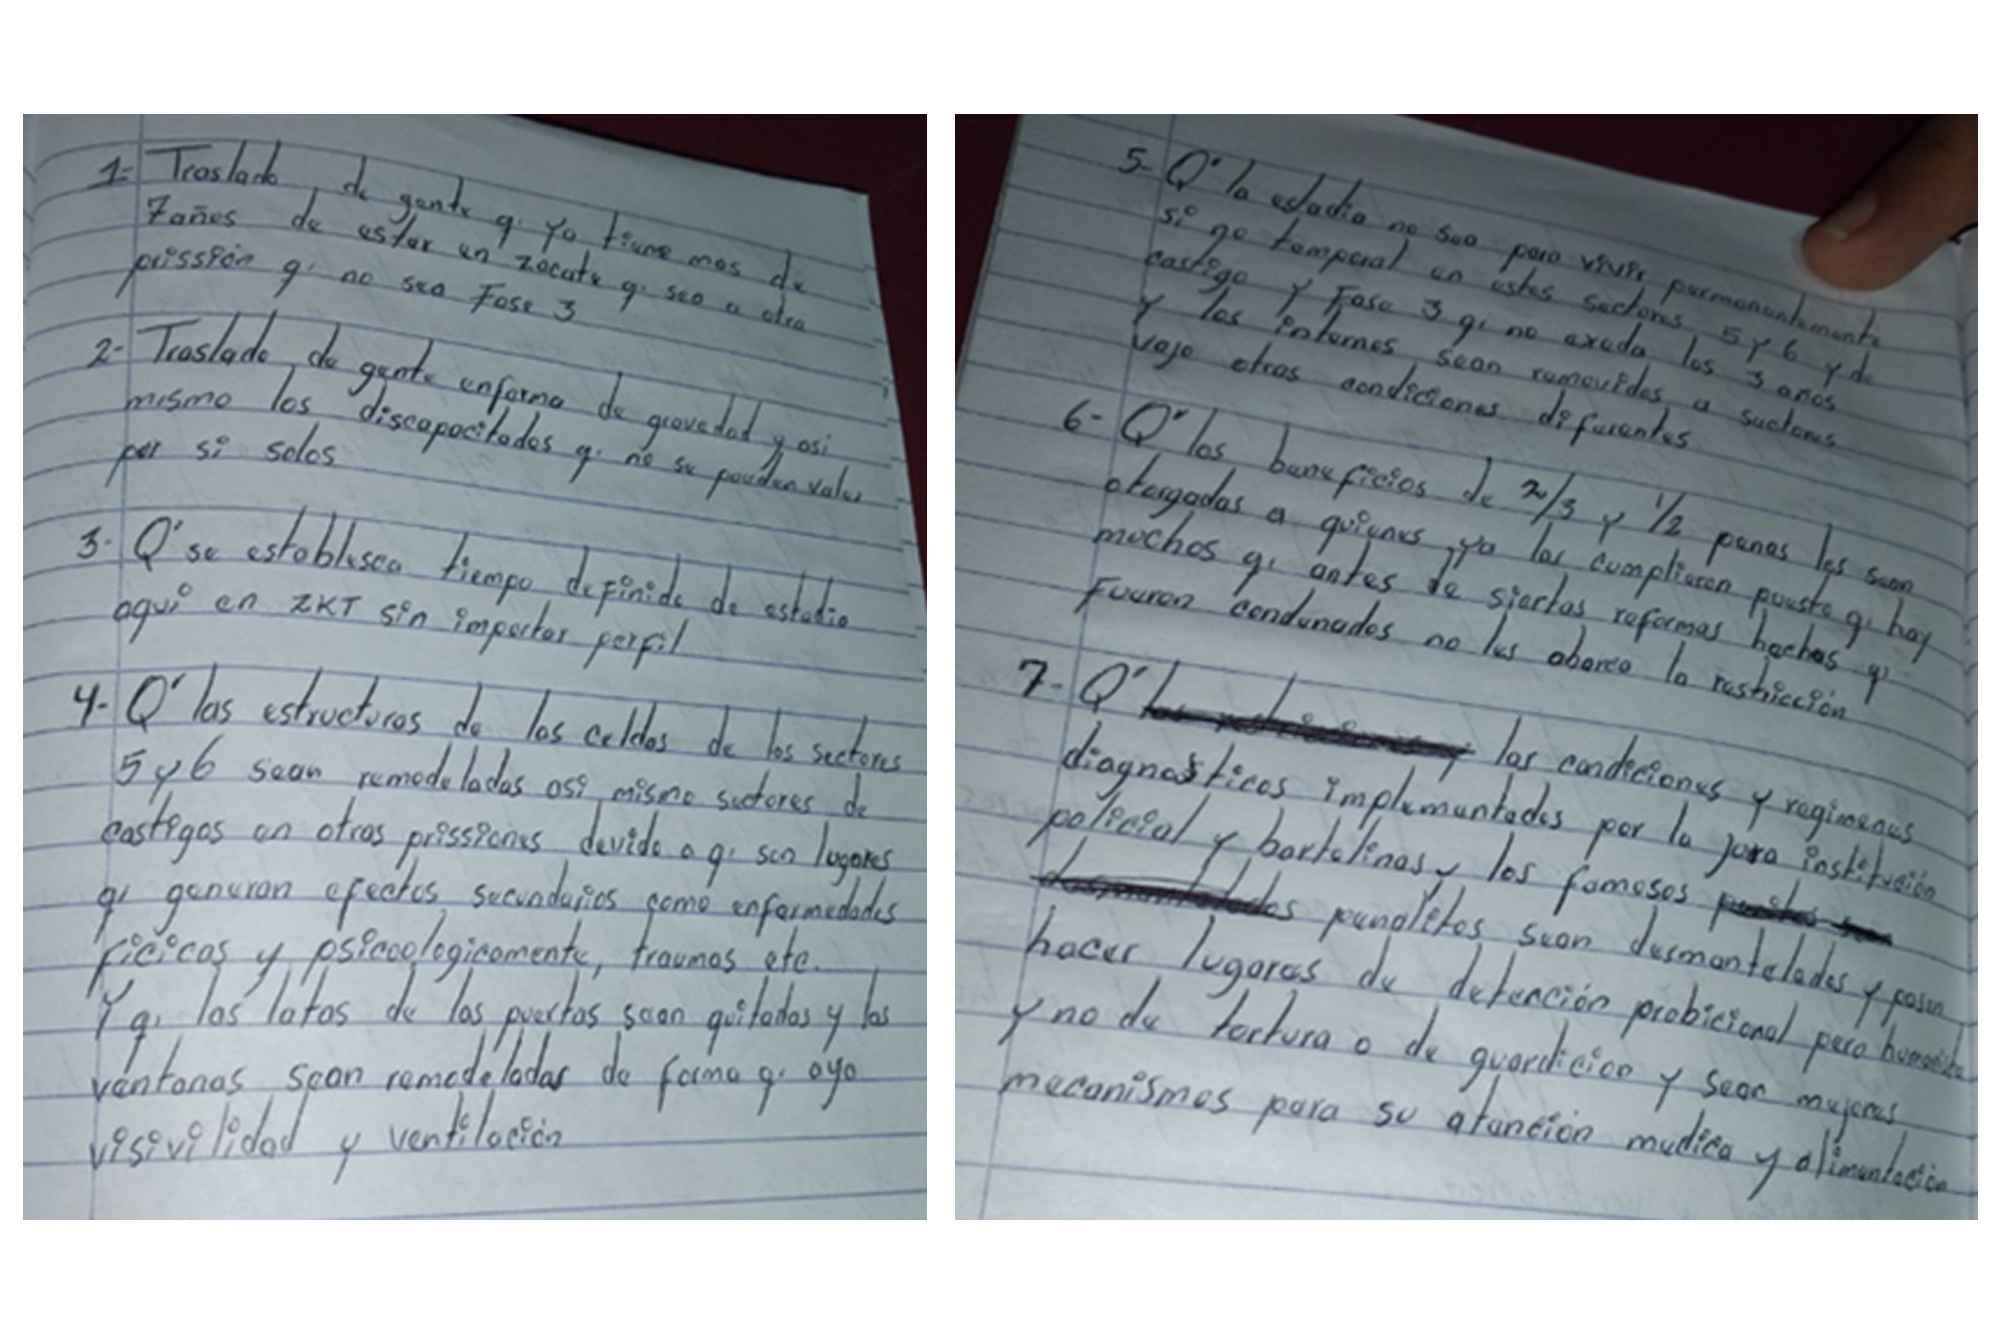 1= Traslado de gente q' ya tiene mas de
7 años de estar en zacate q' sea a otra
prissión q' no sea Fase 3
2- Traslado de gente enferma de gravedad y asi
mismo los discapacitados q' no se pueden valer
por si solos
3- Q' se establesca tiempo definido de estadia
aqui en ZKT sin importar perfil
4- Q' las estructuras de las celdas de los sectores
5 y 6 sean remodeladas asi mismo sectores de
castigos en otras prissiones devido a q' son lugares
q' generan efectos secundarios como enfermedades
ficicas y psicoologicamente, traumas etc.
Y q' las latas de las puertas sean quitadas y las
ventanas sean remodeladas de forma q' aya
visivilidad y ventilación
5- Q' la estadia no sea para vivir permanentemente
si no temporal en estes sectores 5 y 6 y de
castigo y Fase 3 q' no exeda los 3 años
y los internos sean removidos a sectores
vajo otras condiciones diferentes
6- Q' los beneficios de 2/3 y 1/2 penas les sean
otorgadas a quienes ya las cumplieron puesto q' hay
muchos q' antes de siertas reformas hechas q'
Fueron condenados no les abarca la restricción
7- Q' las condiciones y regimenes
diagnosticos implementados por la jura institución
policial y bartolinas y los famosos
penalitos sean desmantelados y pasen
hacer lugares de detención probicional pero humanista
y no de tortura o de guardicion y sean mejores
mecanismos para su atención medica y alimentación